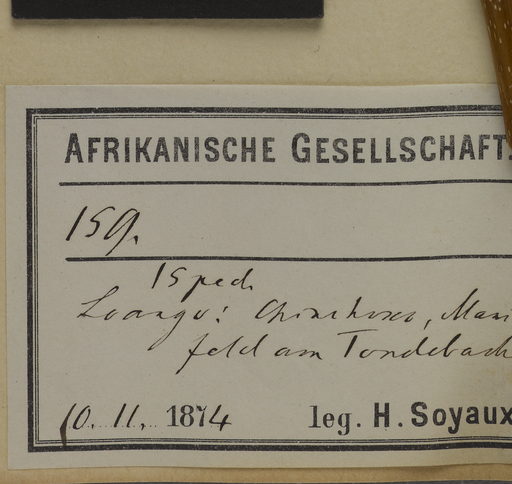 AFRIKANISCHE GESELLSCHAFT.
159.
Loango: Chinchoxo, Mani
feld am Tondebach
10. 11. 1874 leg. H. Soyaux